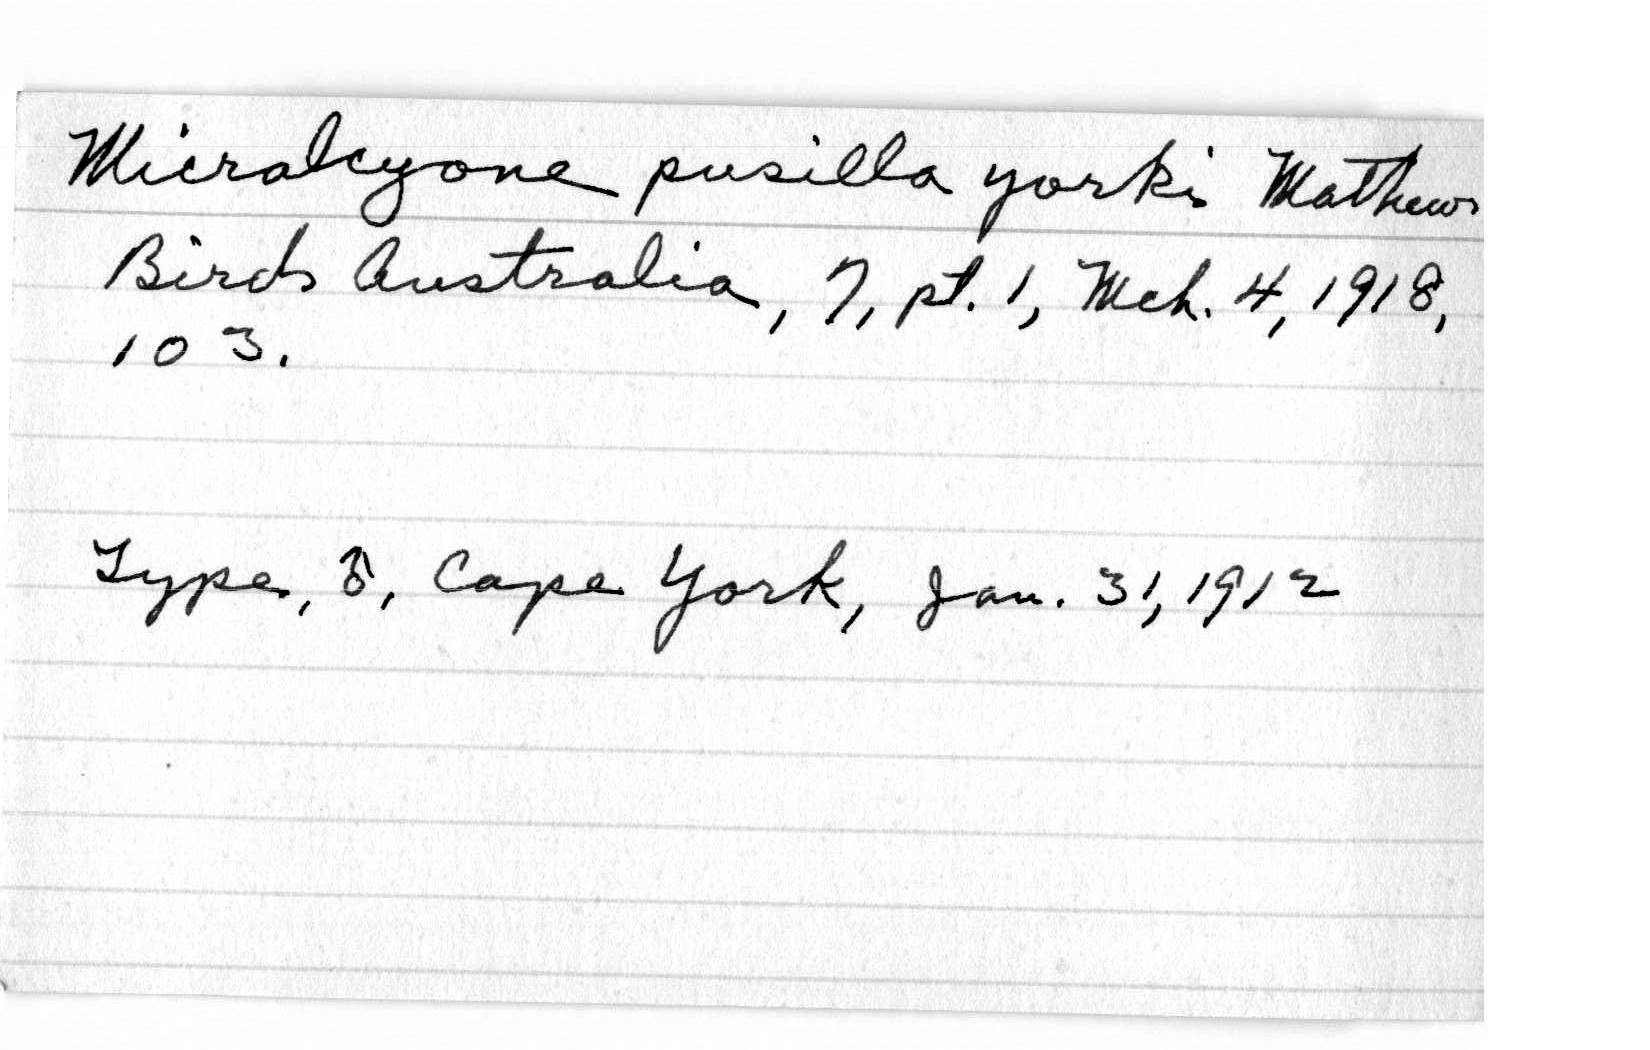 Micralcyone pusilla yorki Mathews
Birds Australia, 7, pt. 1, Mch. 4, 1918,
103.
Type, ♂, Cape York, Jan. 31, 1912